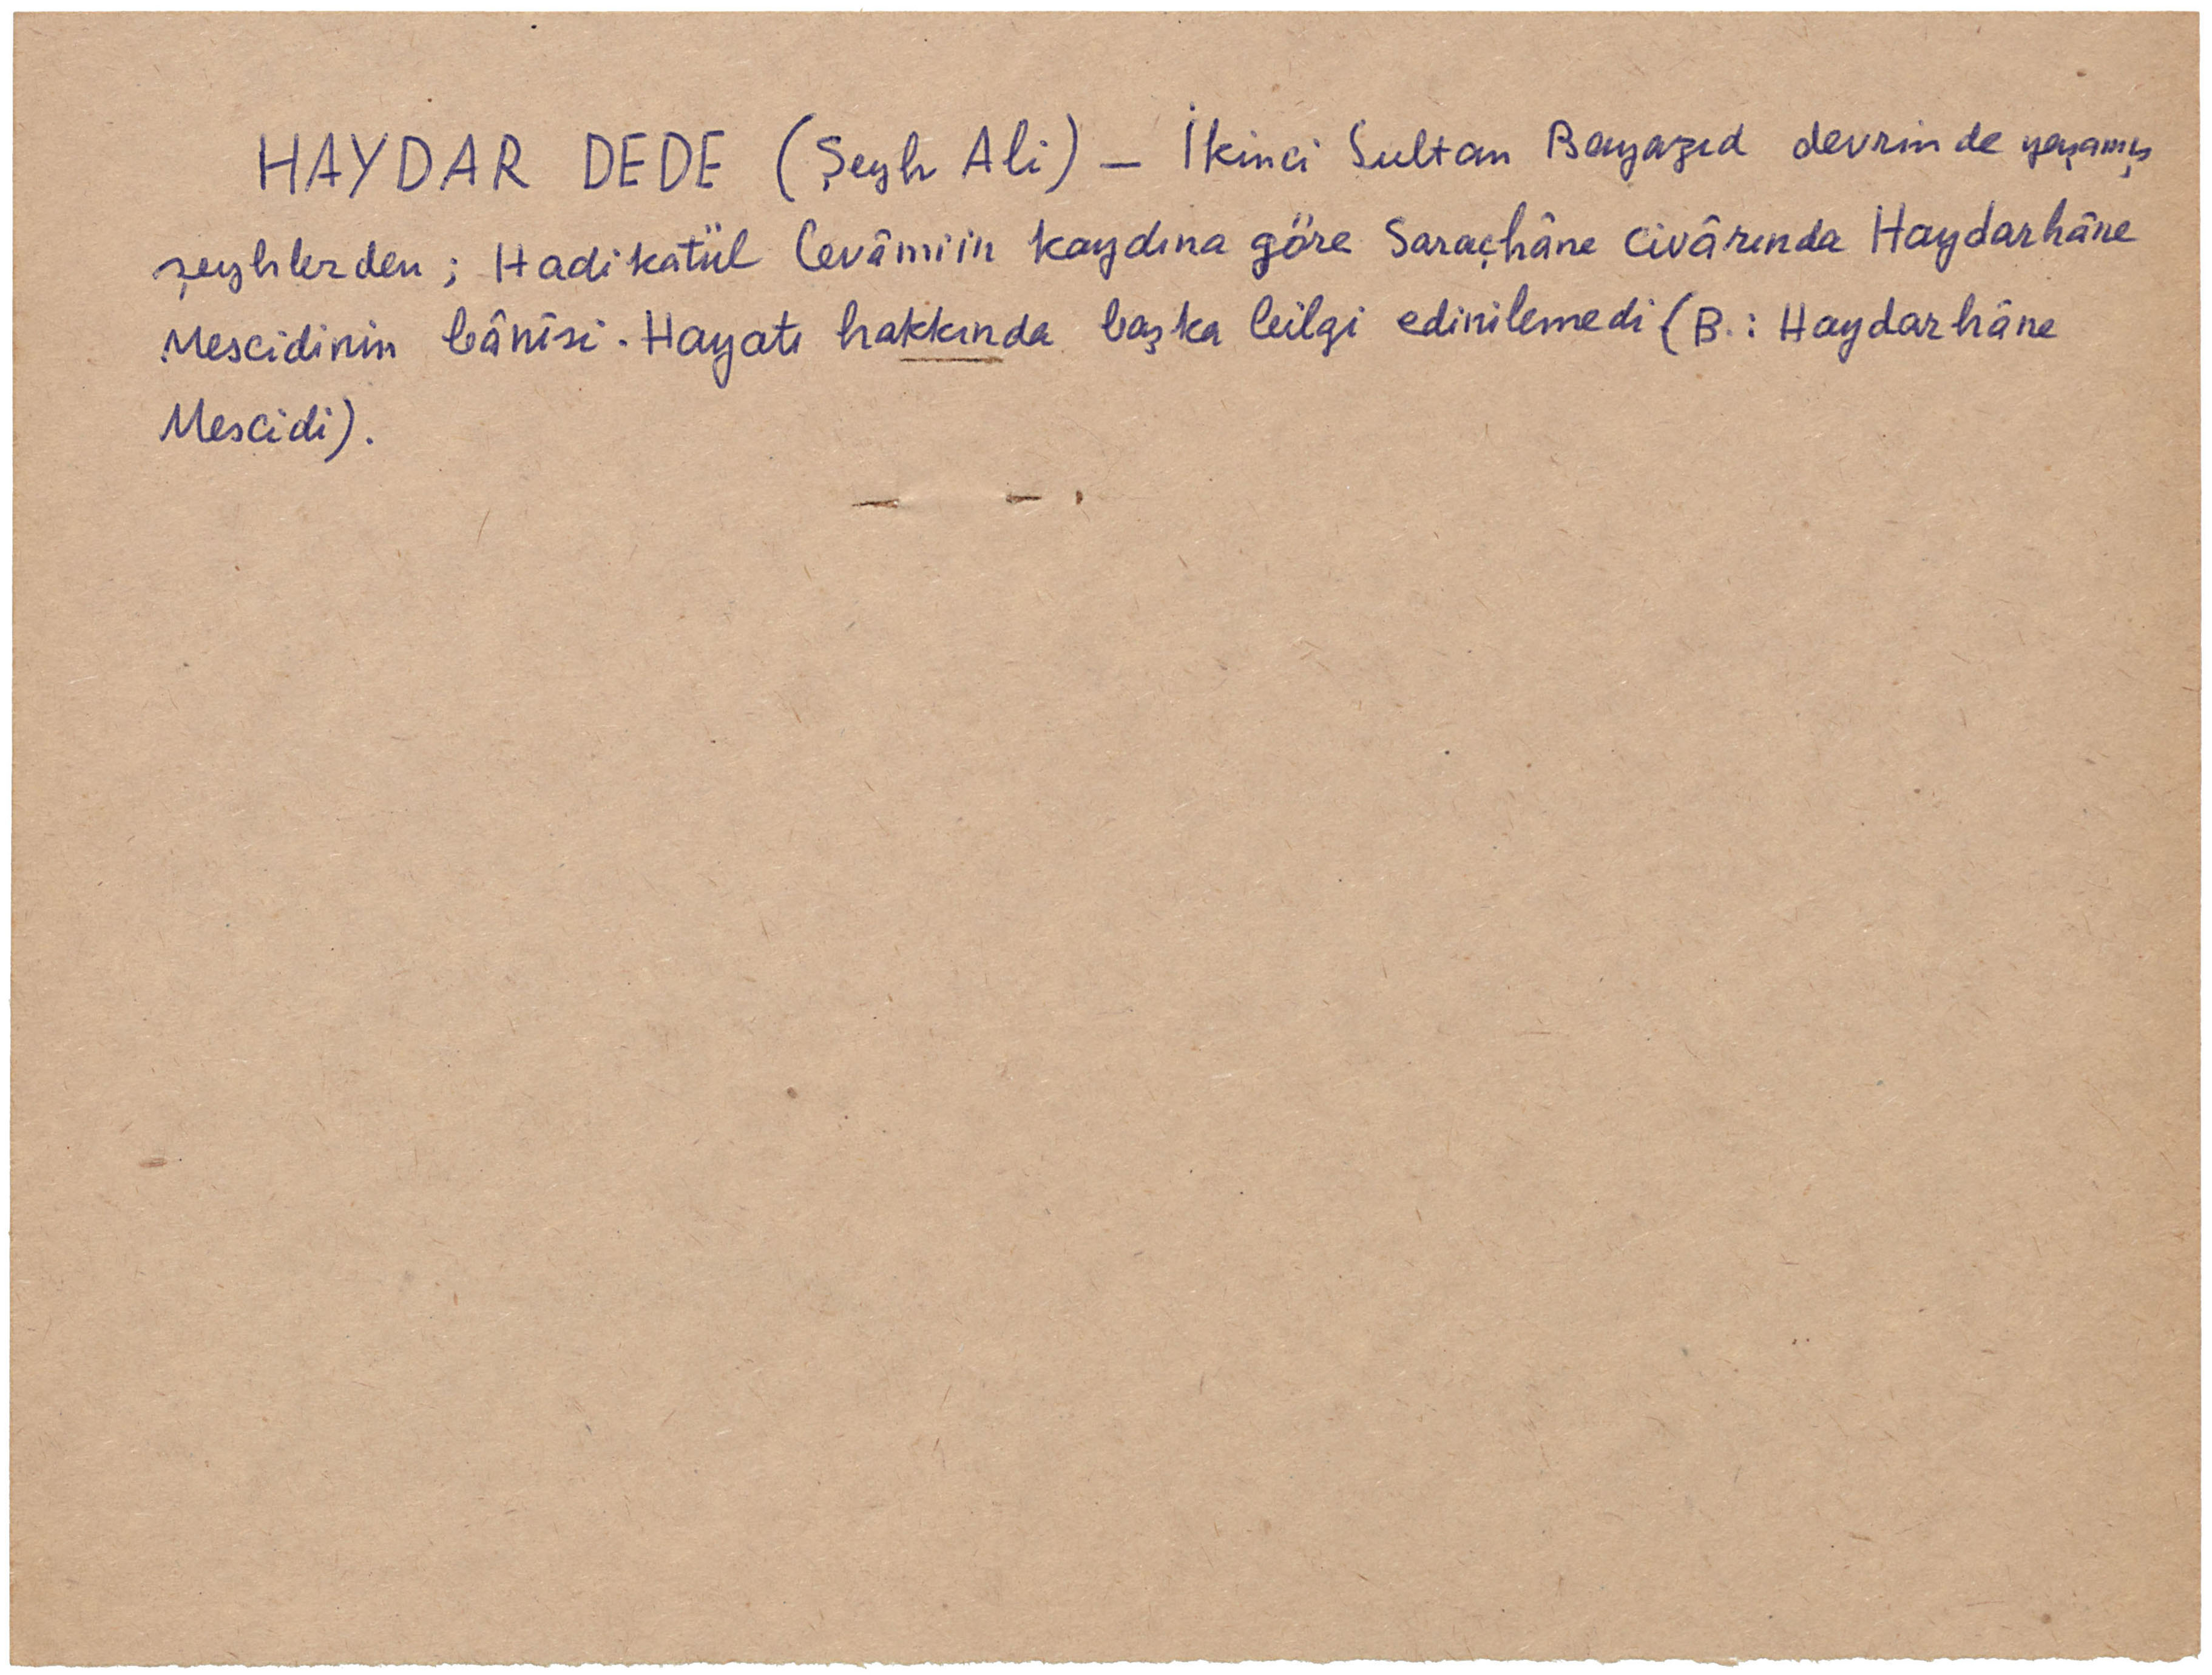 HAYDAR DEDE (Şeyh Ali) — İkinci Sultan Bayazıd devrinde yaşamış
şeyhlerden; Hadikatül Cevâmiin kaydına göre Saraçhâne civârında Haydarhâne
Mescidinin bânîsi. Hayatı hakkında başka bilgi edinilemedi (B.: Haydarhâne
Mescidi).